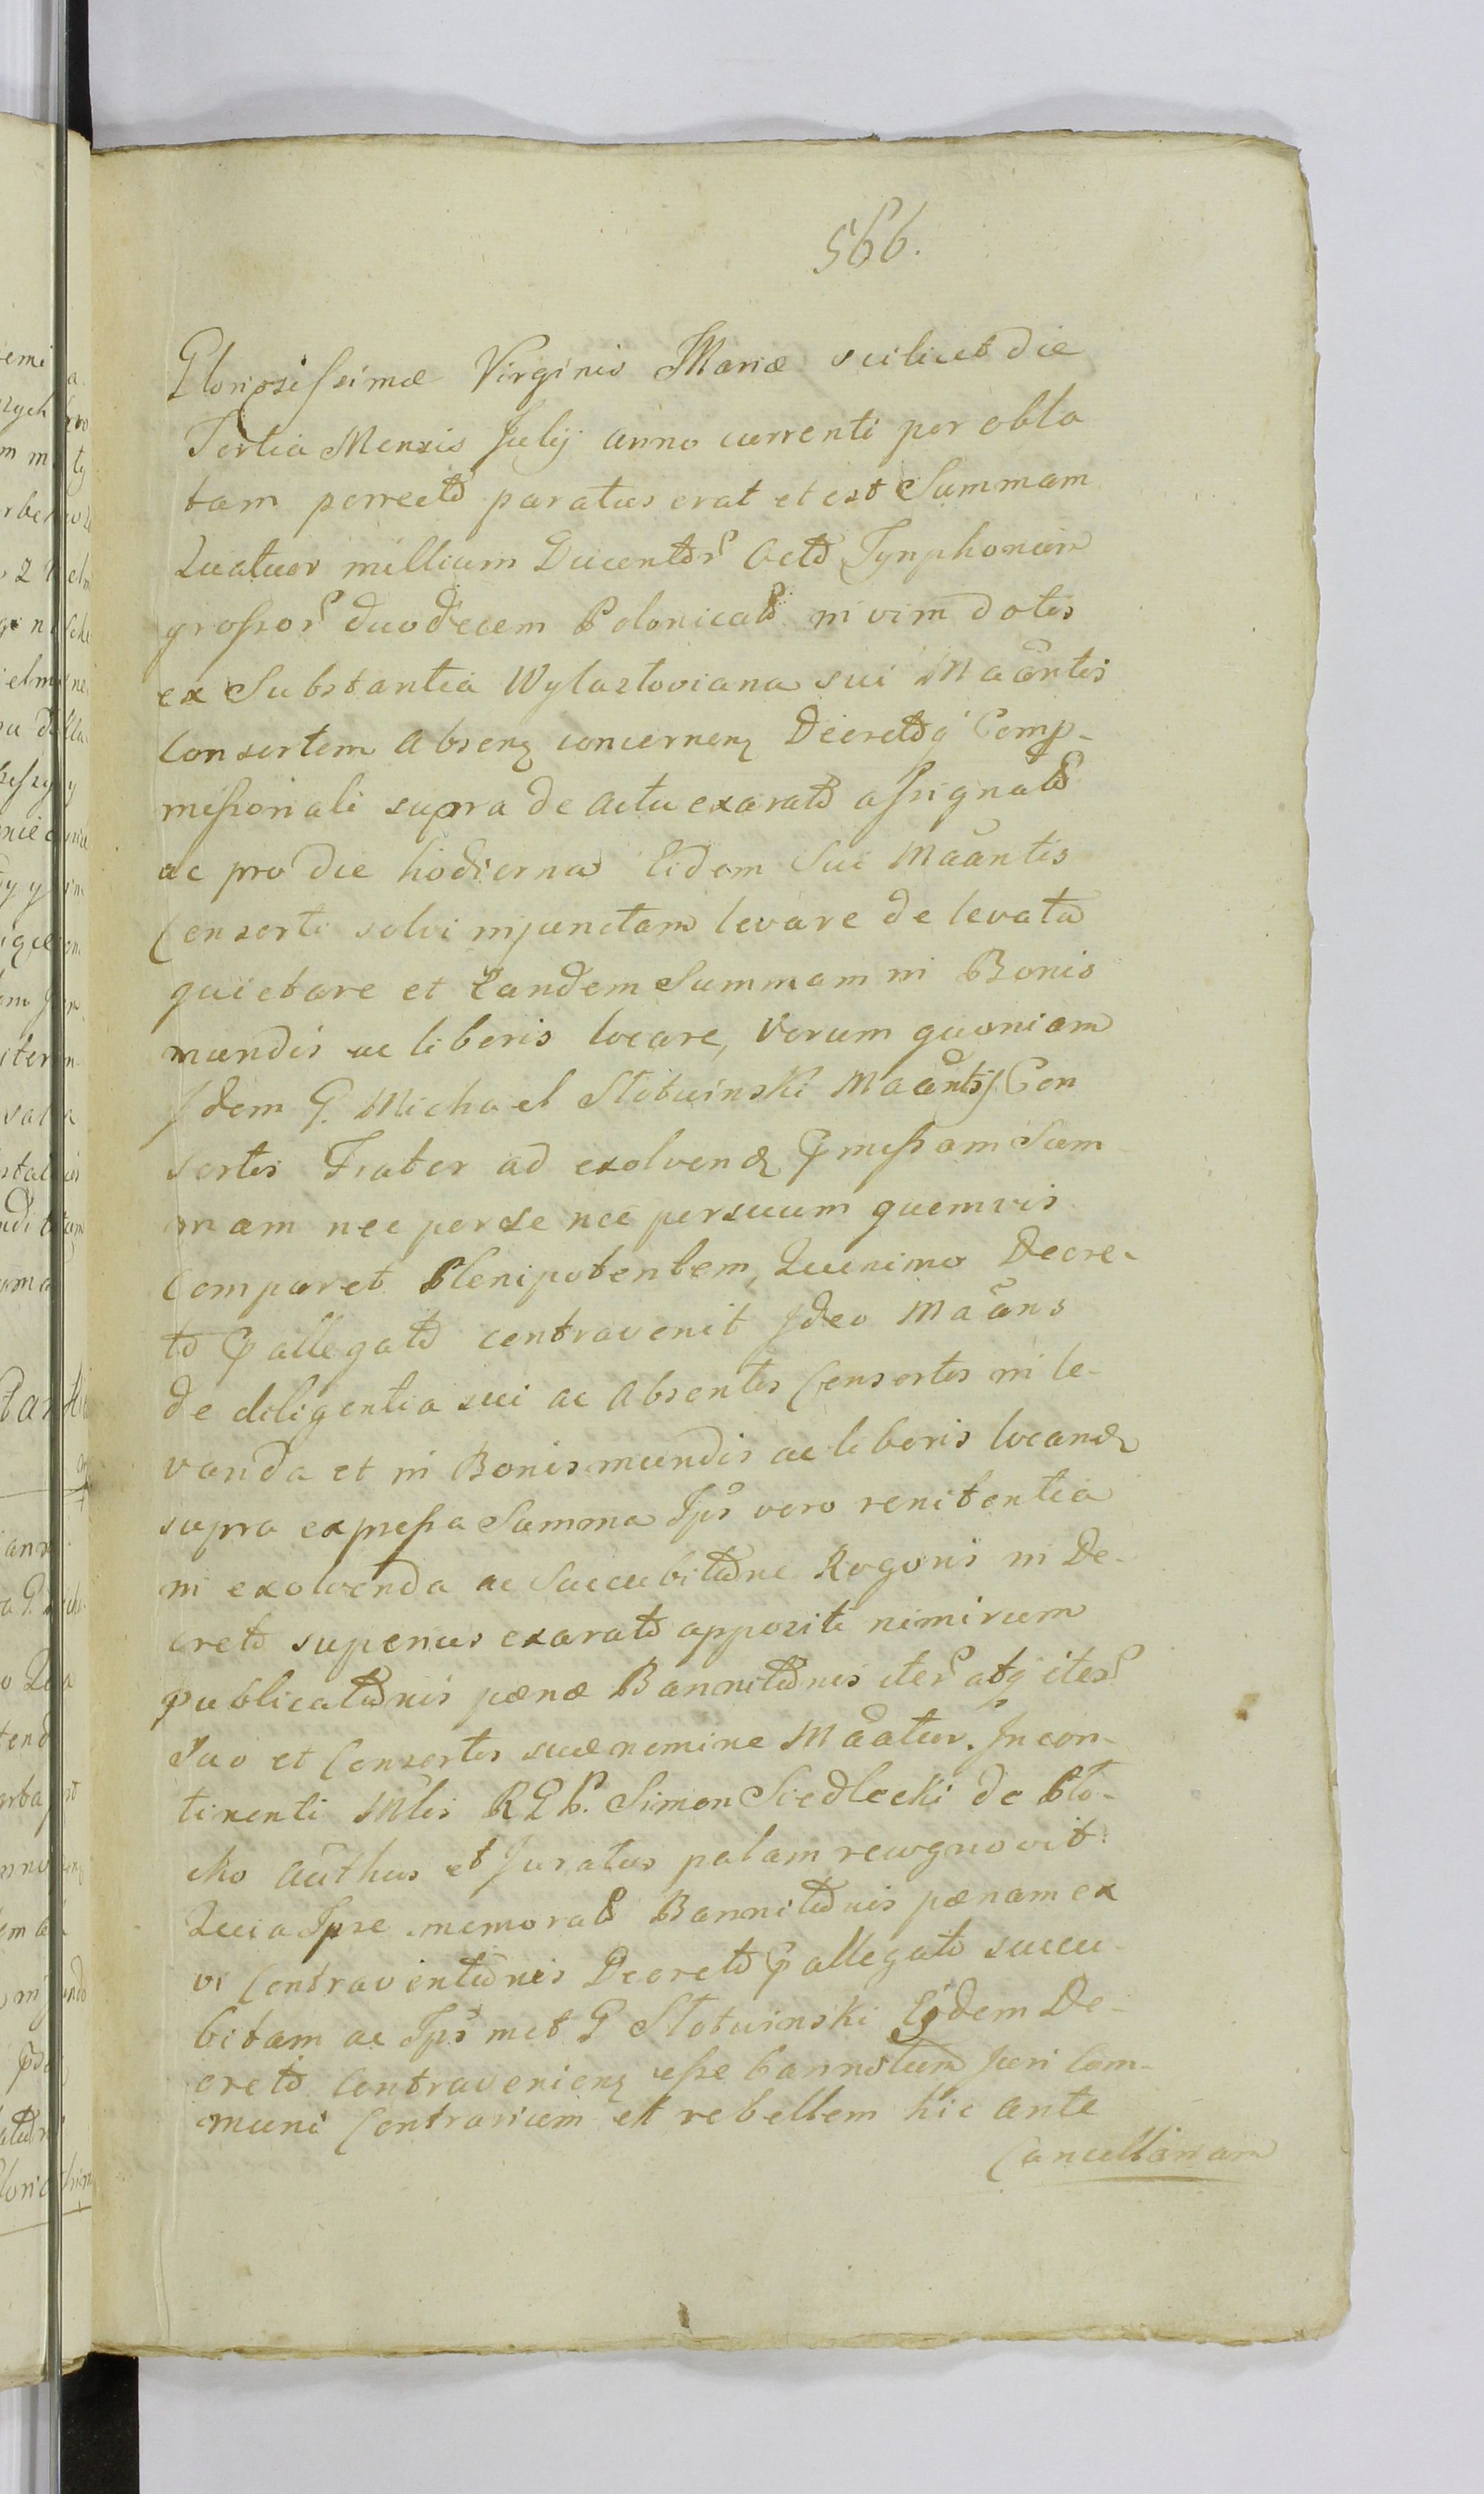 566.
Gloriosissimæ Virginis Mariæ scilicet die
Tertia Mensis Julij anno currenti per obla
tam porrecto paratus erat et est Summam
Quatuor millium Ducentor Octo Tynphonum
grossor duodecem Polonical in vim dotis
ex Substantia Wylaztoviana sui Maantis
Consortem Absenz concernenz Decretoq Comp-
missionali supra de actu exarato assignat
ac pro die hodierna Eidem Sui Maantis
Consorti solvi injunctam levare de levata
quietare et Eandem Summam in Bonis
mundis ac liberis locare, Verum quoniam
Idem G. Michael Slotwinski Maantis Con
sortis Frater ad exolvend pmissam Sum
mam nec per se nec per suum quemvis
Comparet Plenipotentem, Quinimo Decre-
to pallegato contravenit Ideo Maans
de diligentia sui ac Absentis Consortis in le-
vanda et in Bonis mundis ac liberis locand
supra expressa Summa Ips vero renitentia
in exolvenda ac Succubitone Rogoris in De-
creto superius exarato appositi nimirum
publicationis pænæ Bannitonis iter atq iter
Suo et Consortis suæ nomine Maatur. In con-
tinenti Mlis RGP. Simon Siedlecki de Plo-
cko Authus et Juratus palam recognovit
Quia Ipse memorat Bannitonis pænam ex
vi Contraventionis Decreto pallegato succu-
bitam ac Ips met G Slotwinski Eidem De-
creto Contravenienz esse bannitum Juri Com-
muni Contrarium et rebellem hic ante
Cancellariam